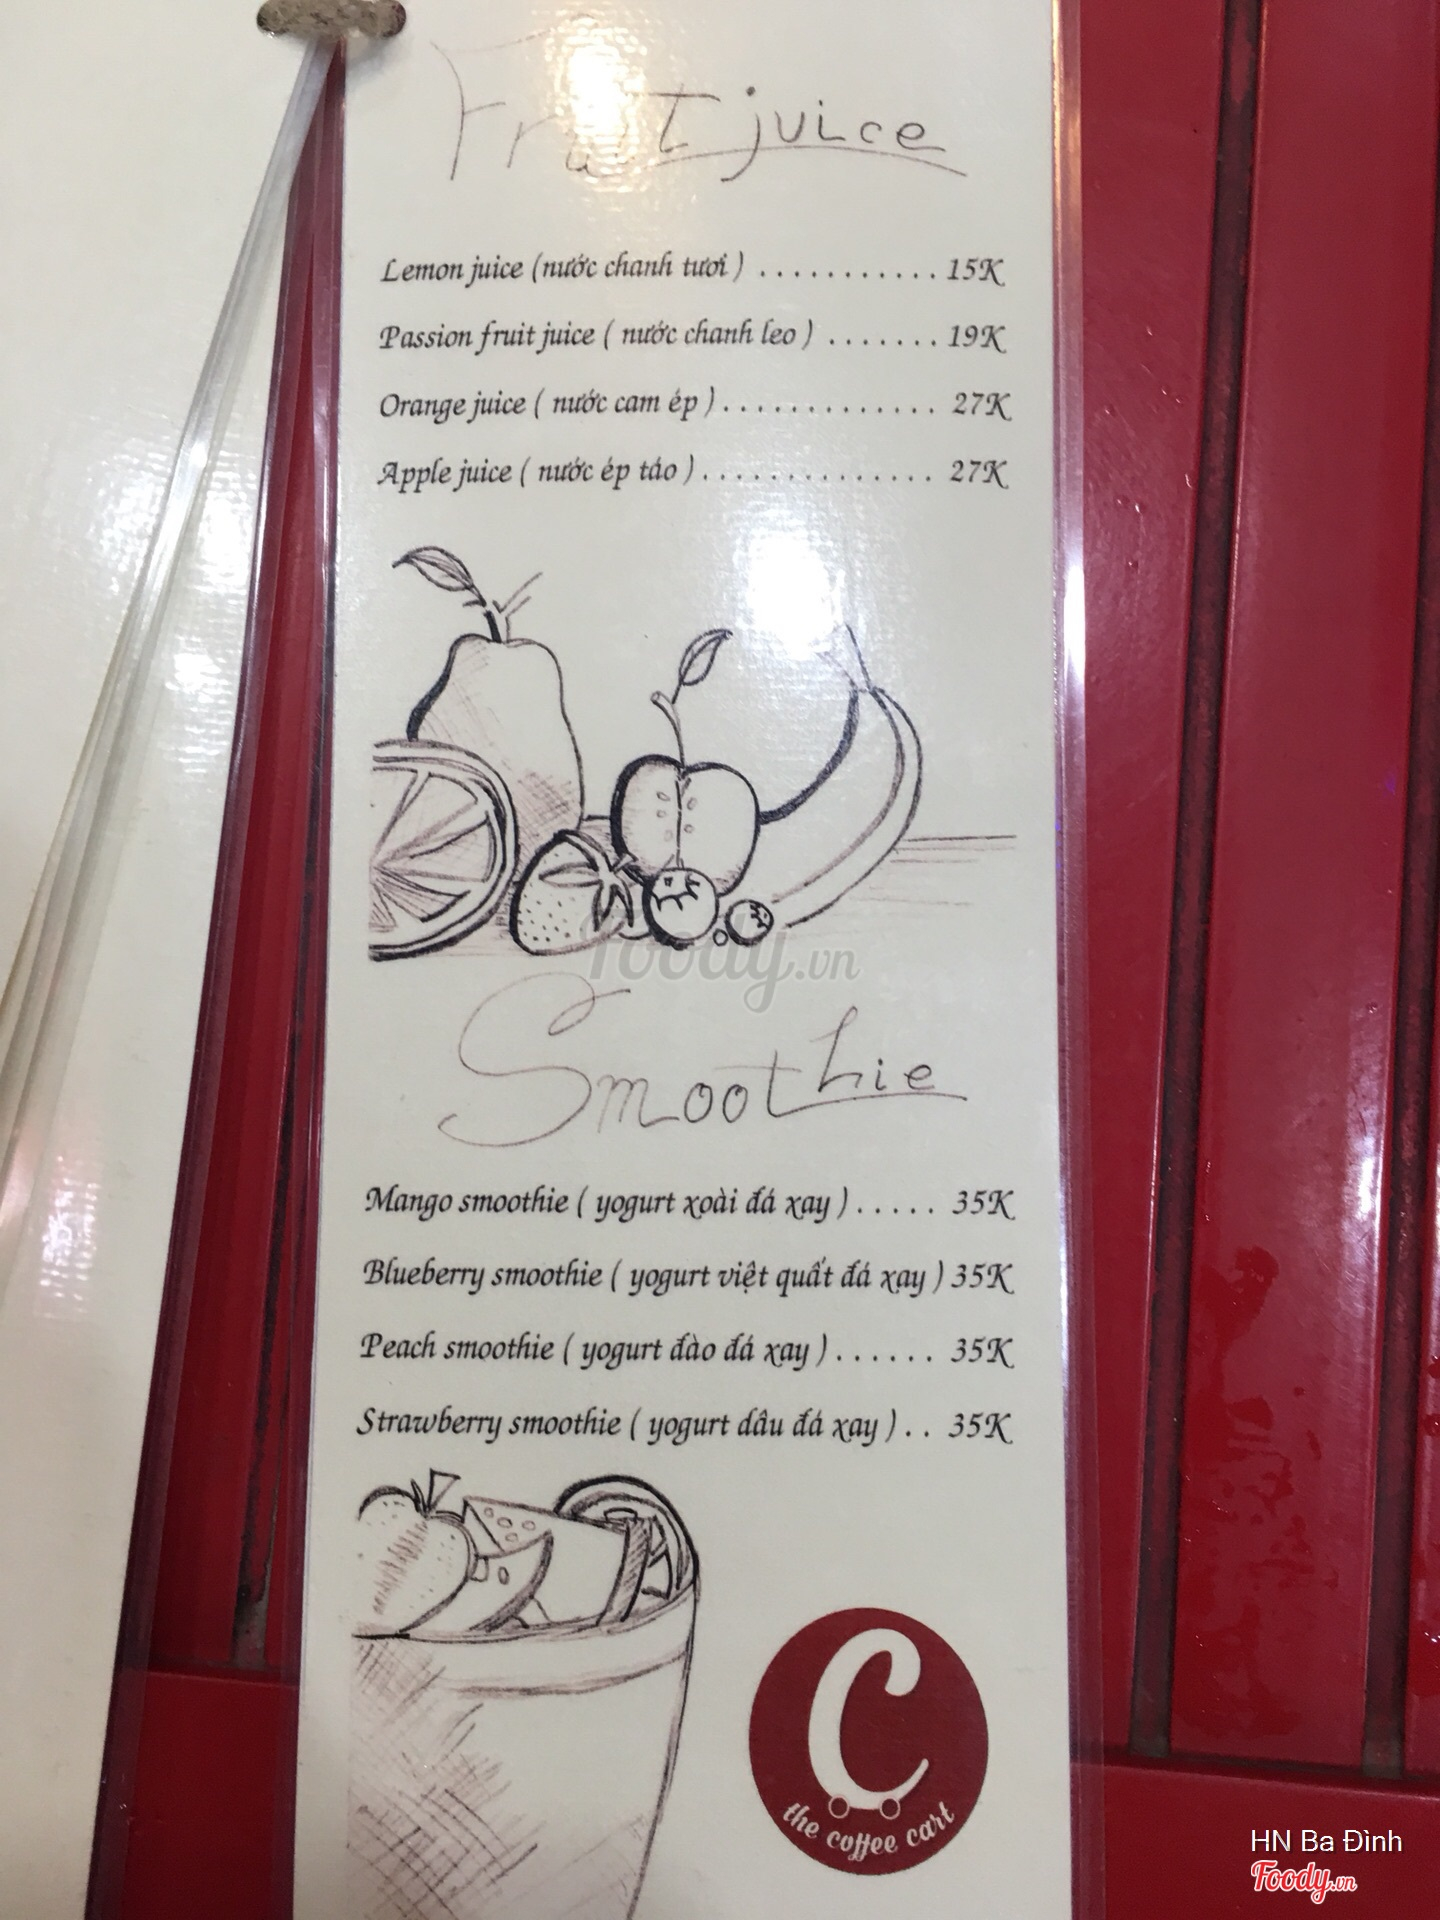 Fruit juice
Lemon juice (nước chanh tươi) ........... 15K
Passion fruit juice ( nước chanh leo ) ....... 19K
Orange juice ( nước cam ép ) ............. 27K
Apple juice ( nước ép táo ) .............. 27K
Foody.vn
Smoothie
Mango smoothie ( yogurt xoài đá xay ) ..... 35K
Blueberry smoothie ( yogurt việt quất đá xay ) 35K
Peach smoothie ( yogurt đào đá xay ) ...... 35K
Strawberry smoothie ( yogurt dâu đá xay ) .. 35K
C
the coffee cart
HN Ba Đình
Foody.vn